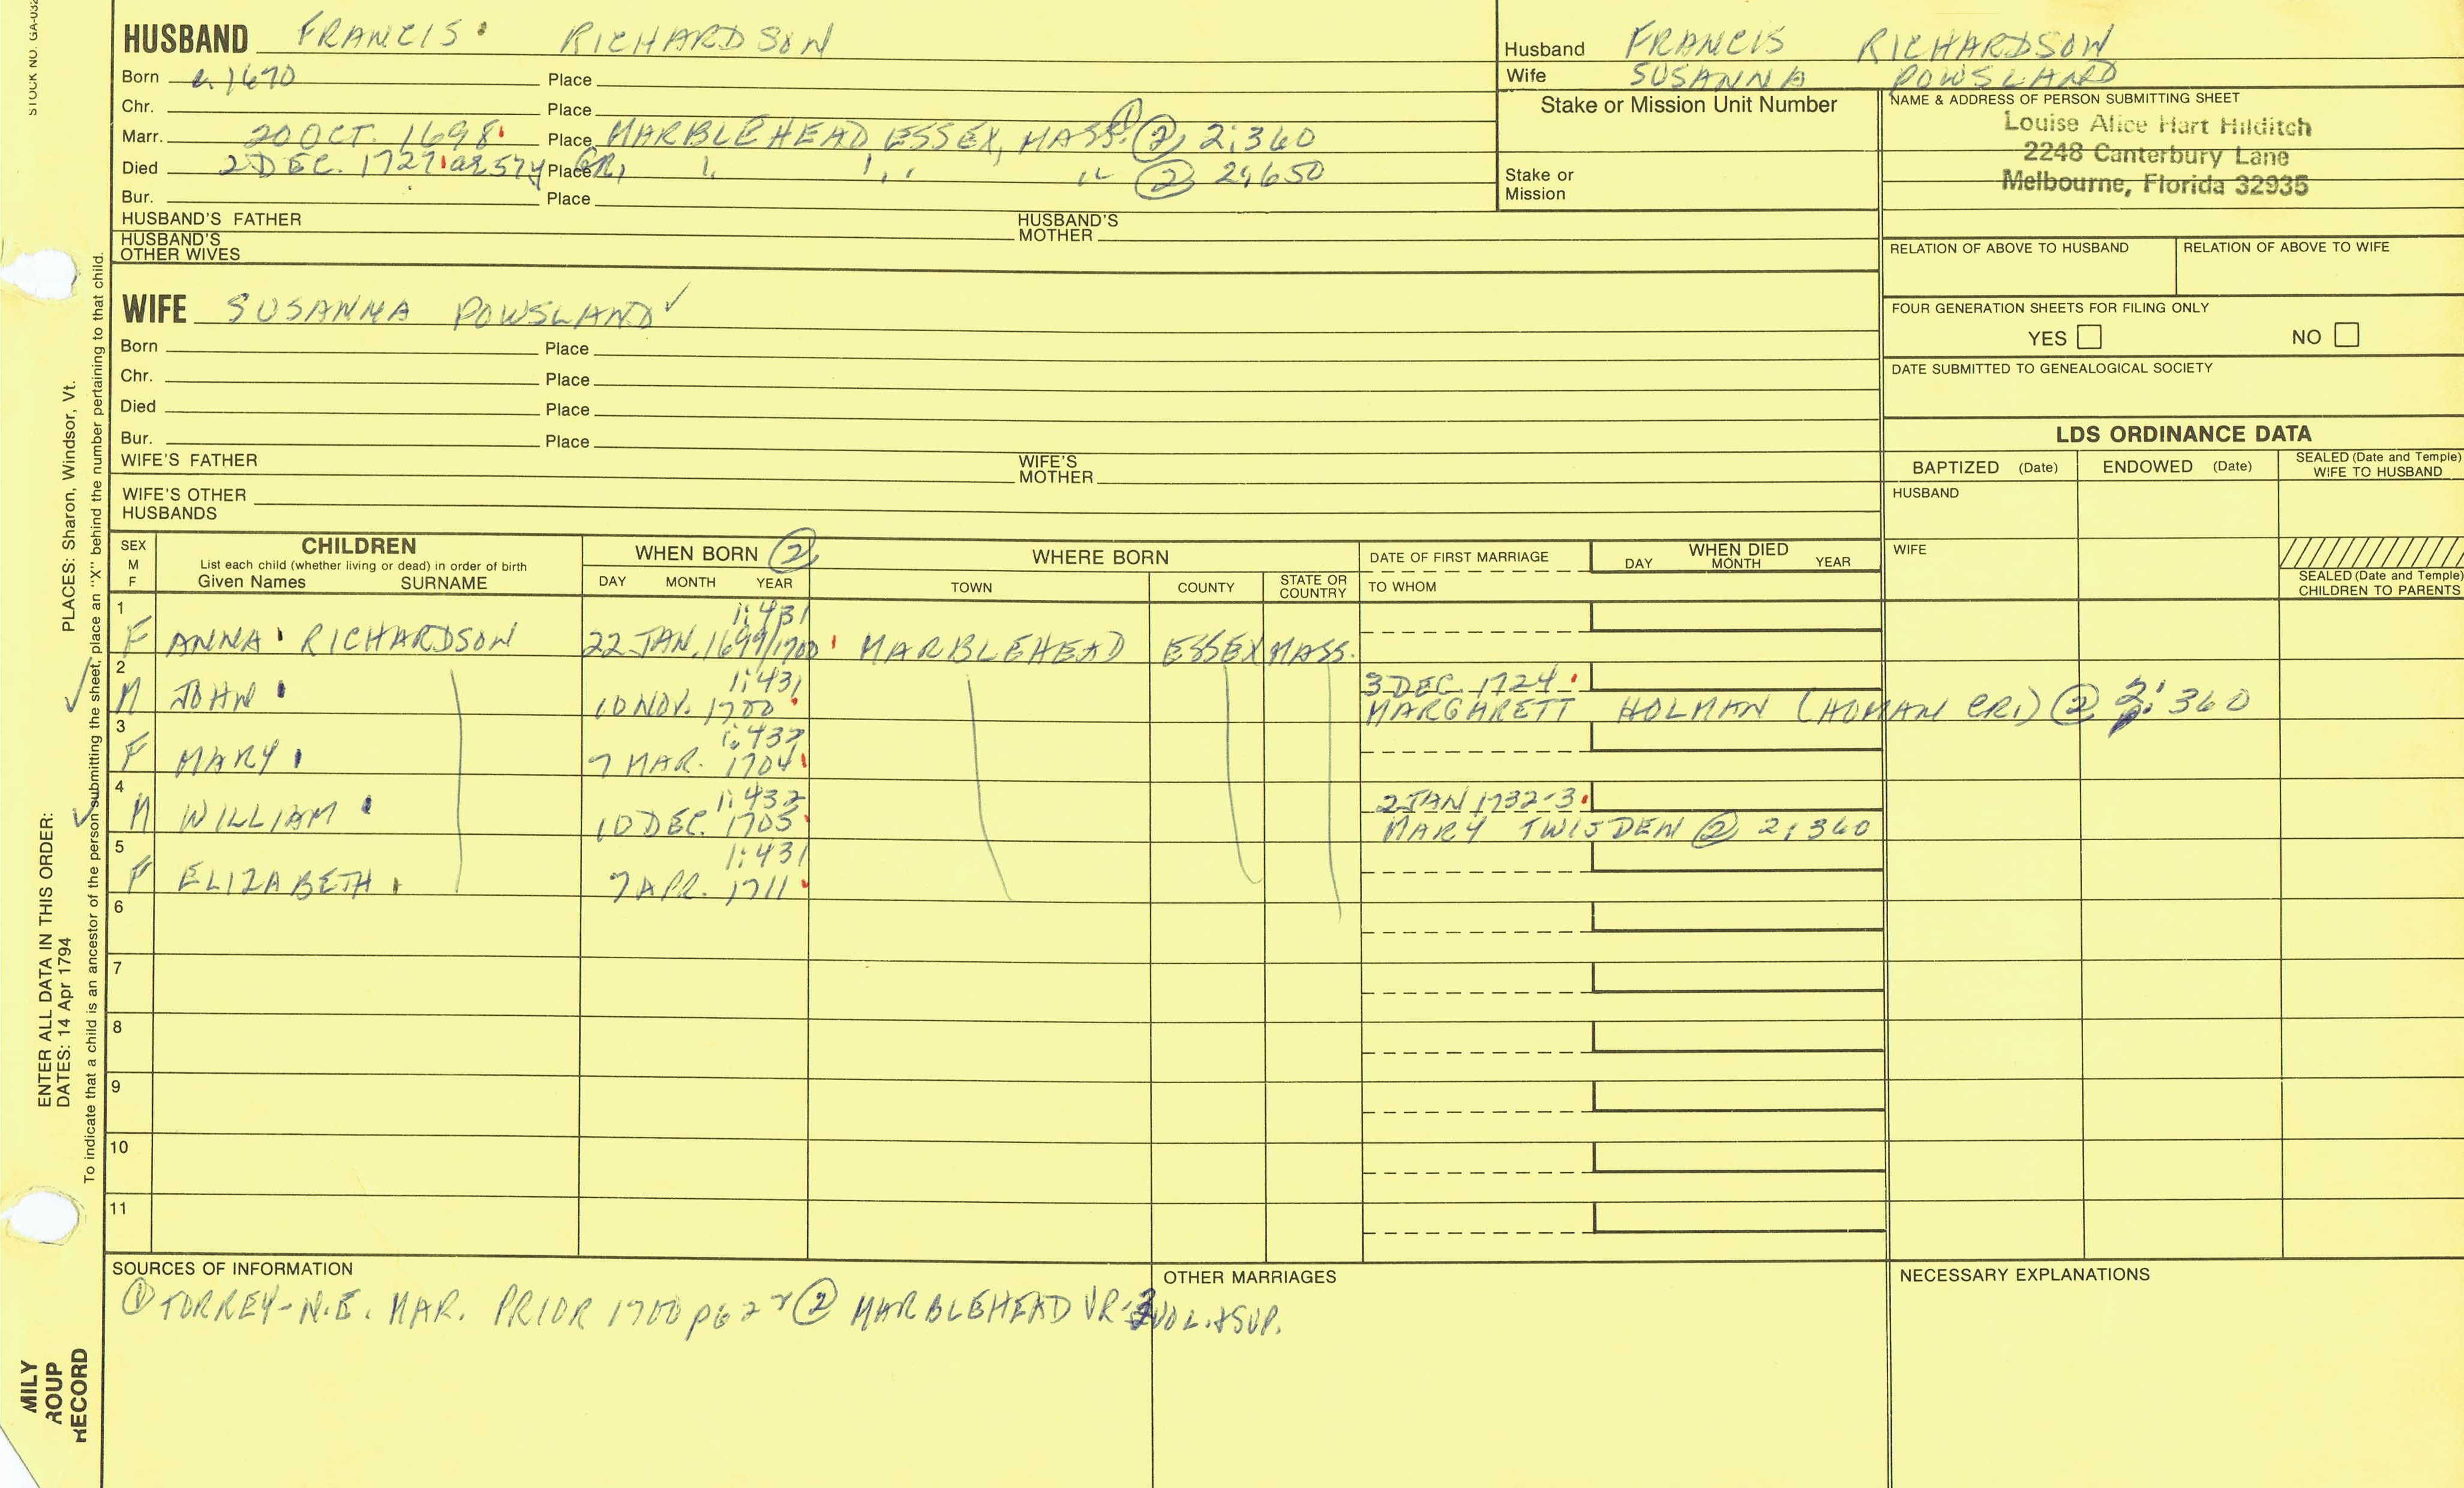 STOCK NO. GA-032
HUSBAND FRANCIS RICHARDSON
Born c. 1670 Place
Chr. Place
Marr. 20 OCT. 1698 Place MARBLEHEAD ESSEX, MASS. ① ② 2:360
Died 2 DEC. 1727 ae 57y Place GR1 " " " ② 2:650
Bur. Place
HUSBAND'S FATHER HUSBAND'S MOTHER
HUSBAND'S OTHER WIVES
Husband FRANCIS RICHARDSON
Wife SUSANNA POWSLAND
Stake or Mission Unit Number
Stake or Mission
NAME & ADDRESS OF PERSON SUBMITTING SHEET
Louise Alice Hart Hilditch
2248 Canterbury Lane
Melbourne, Florida 32935
RELATION OF ABOVE TO HUSBAND RELATION OF ABOVE TO WIFE
FOUR GENERATION SHEETS FOR FILING ONLY
YES NO
DATE SUBMITTED TO GENEALOGICAL SOCIETY
WIFE SUSANNA POWSLAND ✓
Born Place
Chr. Place
Died Place
Bur. Place
WIFE'S FATHER WIFE'S MOTHER
WIFE'S OTHER HUSBANDS
LDS ORDINANCE DATA
BAPTIZED (Date) ENDOWED (Date) SEALED (Date and Temple) WIFE TO HUSBAND
HUSBAND
WIFE
SEALED (Date and Temple) CHILDREN TO PARENTS
SEX M F
CHILDREN
List each child (whether living or dead) in order of birth
Given Names SURNAME
WHEN BORN ②
DAY MONTH YEAR
WHERE BORN
TOWN COUNTY STATE OR COUNTRY
DATE OF FIRST MARRIAGE
TO WHOM
WHEN DIED
DAY MONTH YEAR
1 1:431
F ANNA RICHARDSON 22 JAN. 1699/1700 MARBLEHEAD ESSEX MASS.
2 1:431 3 DEC. 1724
M JOHN 10 NOV. 1700 MARGARETT HOLMAN (HOMAN CR1) ② 2:360
3 1:432
F MARY 7 MAR. 1704
4 1:432 2 JAN 1732-3
M WILLIAM 10 DEC. 1705 MARY TWISDEN ② 2:360
5 1:431
F ELIZABETH 7 APR. 1711
6
7
8
9
10
11
SOURCES OF INFORMATION
① TORREY-N.E. MAR. PRIOR 1700 pg ② MARBLEHEAD VR-3 VOL. + SUP.
OTHER MARRIAGES
NECESSARY EXPLANATIONS
ENTER ALL DATA IN THIS ORDER:
DATES: 14 Apr 1794 PLACES: Sharon, Windsor, Vt.
To indicate that a child is an ancestor of the person submitting the sheet, place an "X" behind the number pertaining to that child.
MILY
ROUP
RECORD